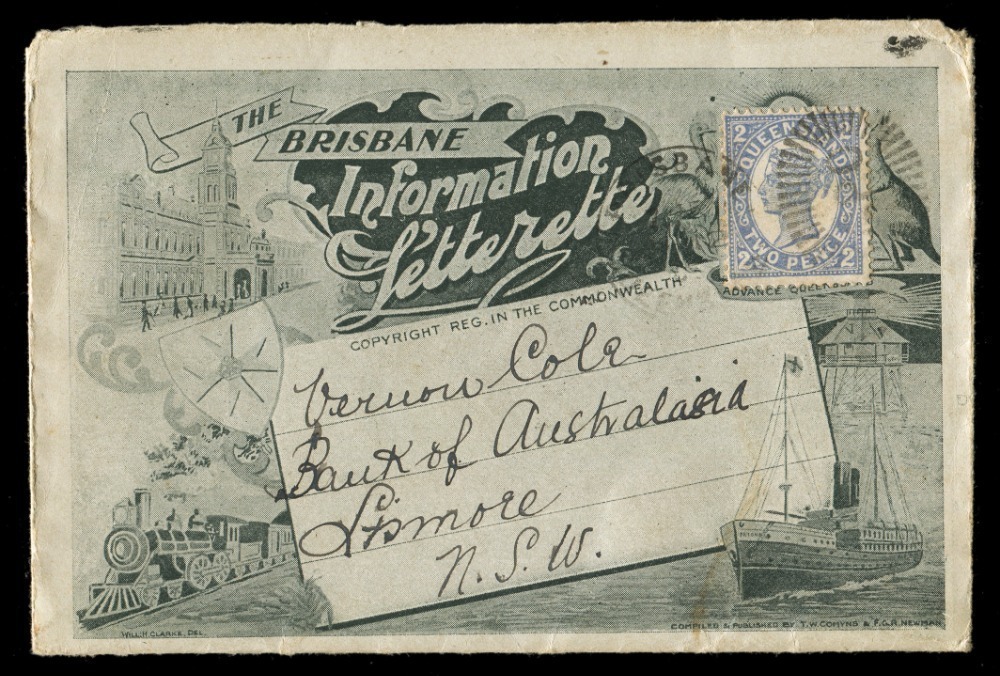 THE
BRISBANE
Information
Letterette
COPYRIGHT REG. IN THE COMMONWEALTH
2 QUEENSLAND 2
2 TWO PENCE 2
ADVANCE
Vernon Cole
Bank of Australasia
Lismore
N. S. W.
WILL H CLARKE, DEL.
COMPILED & PUBLISHED BY T. W. COMYNS & F. G. R. NEWMAN